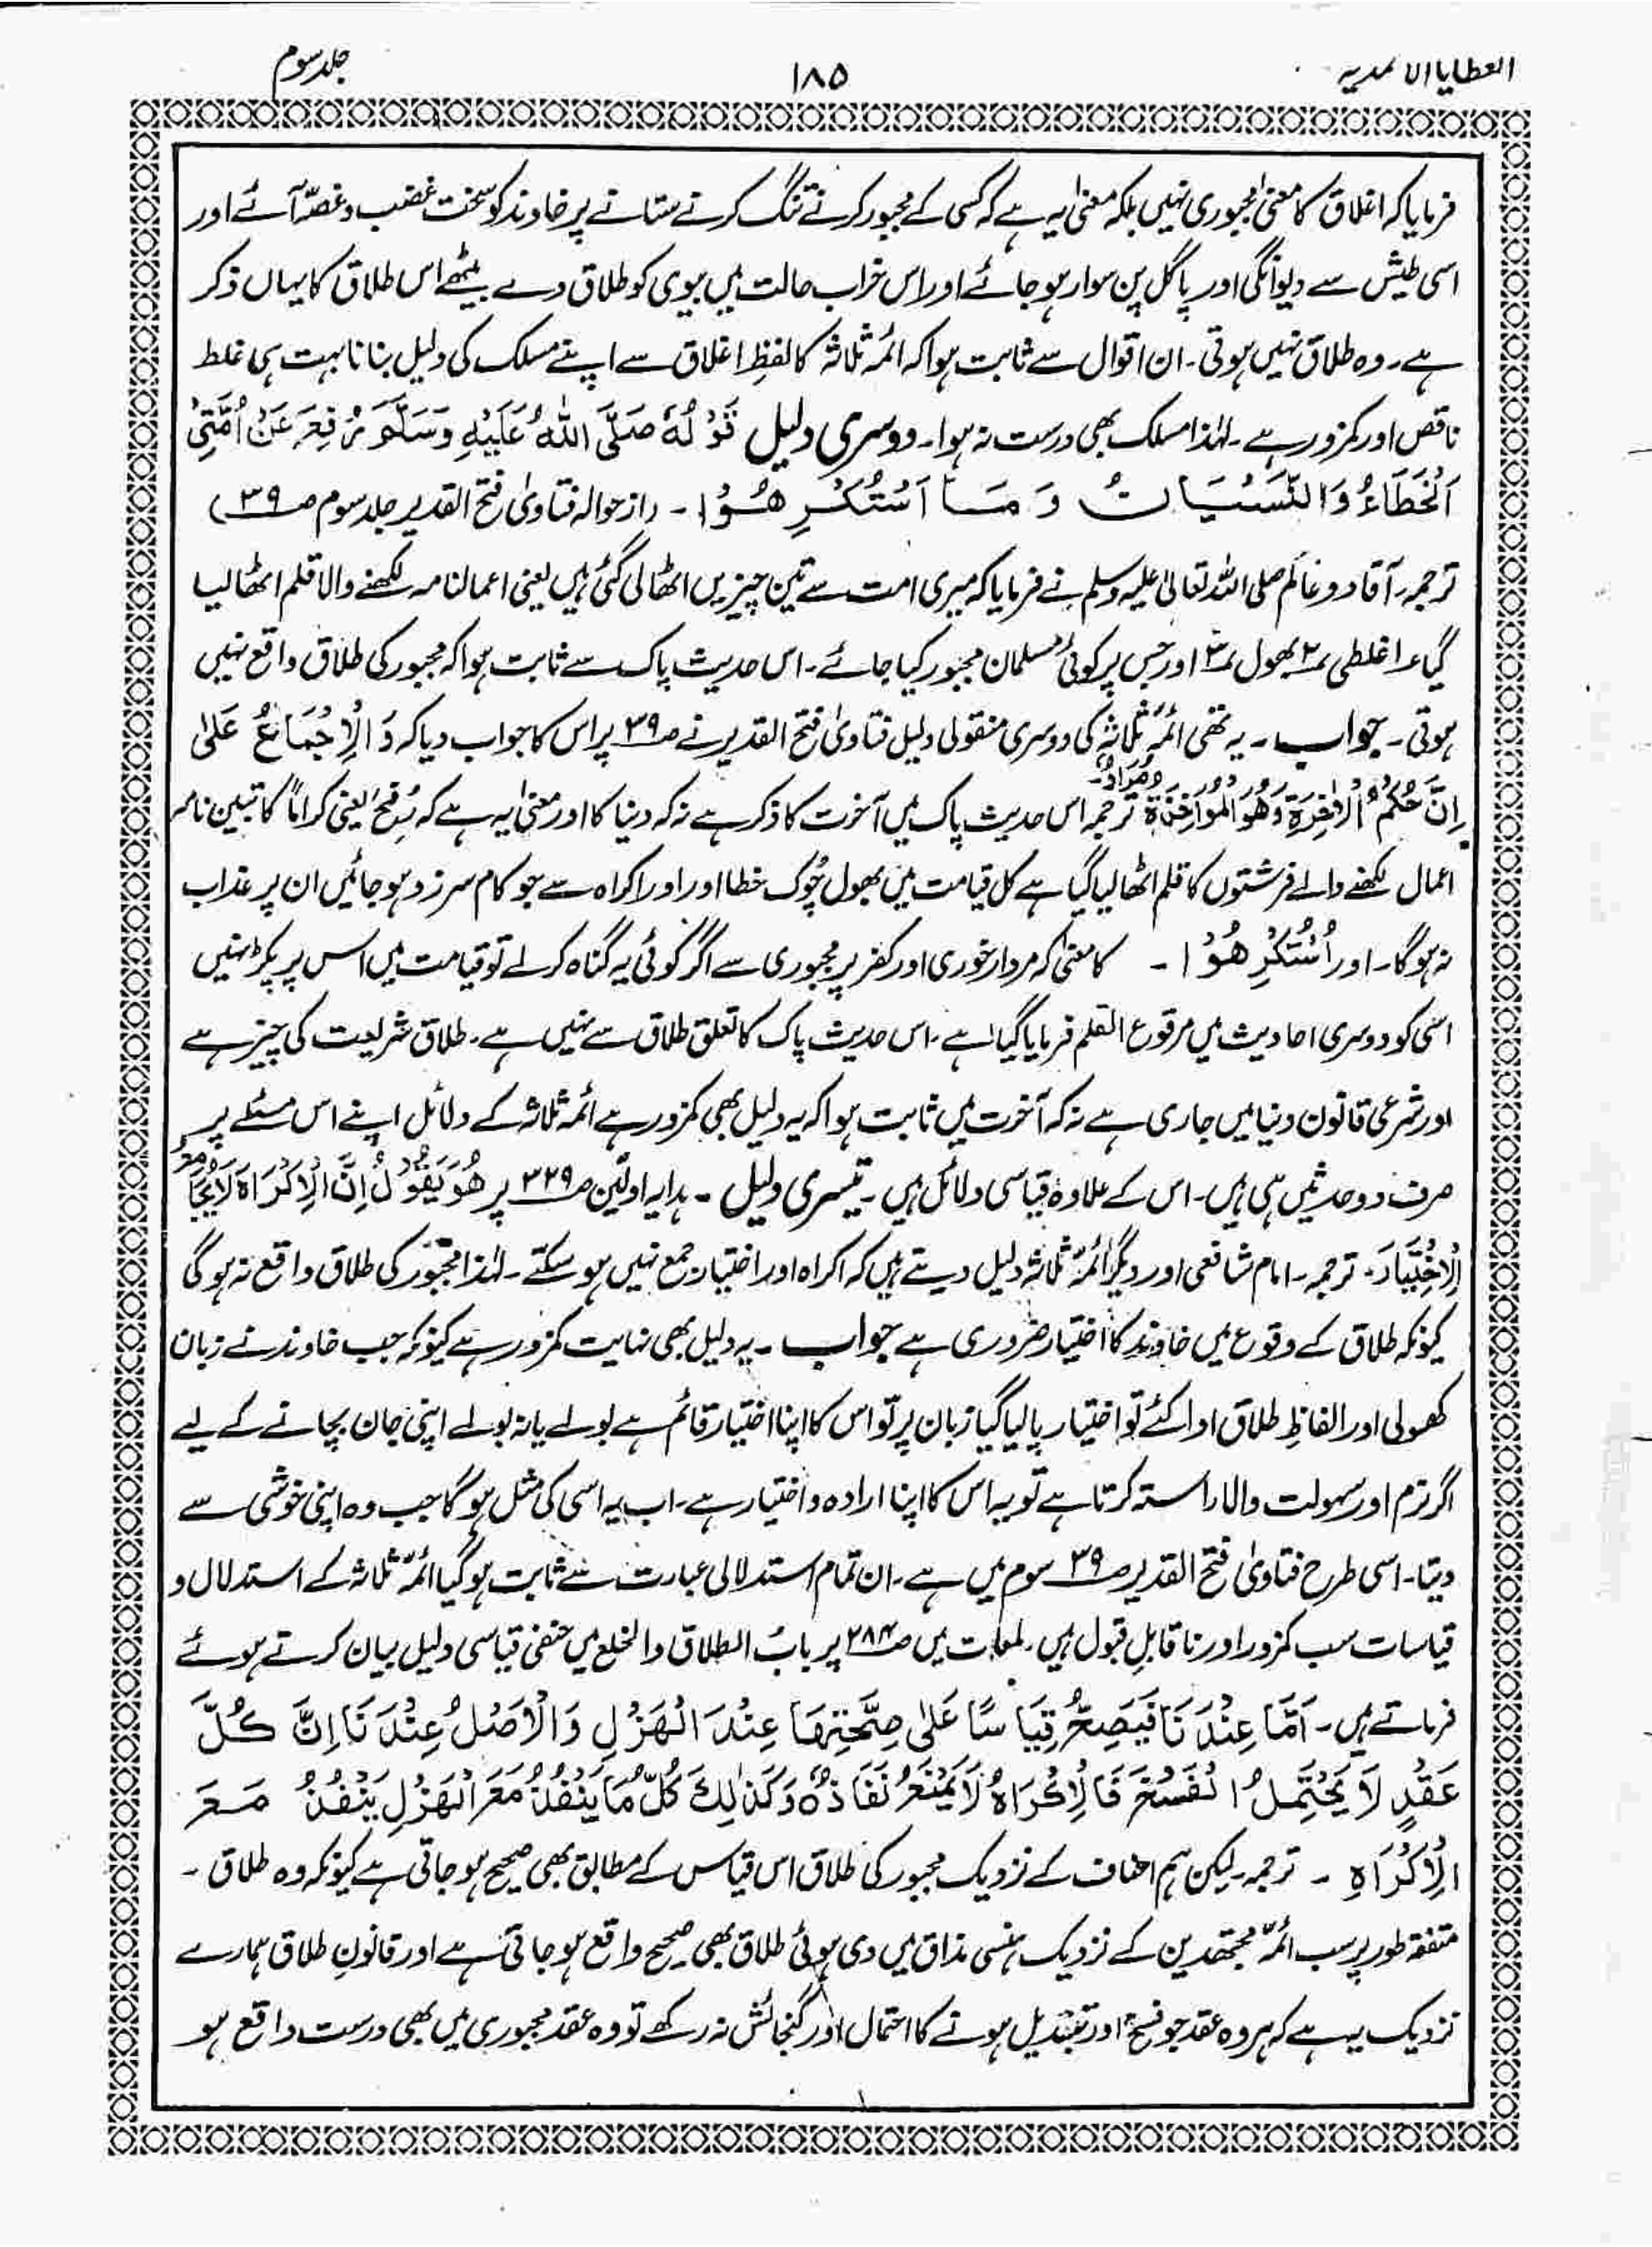 العطایا الاحمدیہ
۱۸۵
جلد سوم
فرمایا کہ اغلاق کا معنیٰ مجبوری نہیں بلکہ معنیٰ یہ ہے کہ کسی کے مجبور کرنے تنگ کرنے ستانے پر خاوند کو سخت غضب و غصّہ آئے اور
اسی طیش سے دیوانگی اور پاگل پن سوار ہو جائے اور اس خراب حالت میں بیوی کو طلاق دے بیٹھے اس طلاق کا یہاں ذکر
ہے۔ وہ طلاق نہیں ہوتی۔ ان اقوال سے ثابت ہوا کہ ائمہ ثلاثہ کا لفظِ اغلاق سے اپنے مسلک کی دلیل بنانا بہت ہی غلط
ناقص اور کمزور ہے۔ لہٰذا مسلک بھی درست نہ ہوا۔ دوسری دلیل قَوْلُهٗ صَلَّى اللّٰهُ عَلَيْهِ وَسَلَّمَ رُفِعَ عَنْ اُمَّتِیْ
اَلْخَطَاءُ وَالنِّسْيَانُ وَ مَا اسْتُكْرِهُوْا۔ (از حوالہ فتاویٰ فتح القدیر جلد سوم صـ ۳۹)
ترجمہ۔ آقاء دو عالَم صلی اللہ تعالیٰ علیہ وسلم نے فرمایا کہ میری امت سے تین چیزیں اٹھالی گئی ہیں یعنی اعمالنامہ لکھنے والا قلم اٹھا لیا
گیا ۱ غلطی ۲ بھول ۳ اور جس پر کوئی مسلمان مجبور کیا جائے۔ اس حدیث پاک سے ثابت ہوا کہ مجبور کی طلاق واقع نہیں
ہوتی۔ جواب۔ یہ تھی ائمہ ثلاثہ کی دوسری منقولی دلیل فتاویٰ فتح القدیر نے صـ ۳۹ پر اس کا جواب دیا کہ وَالْاِجْمَاعُ عَلیٰ
اِنَّ حُكْمُ الْاٰخِرَةِ وَهُوَ الْمُوَاخَذَةُ مُرَادٌ۔ ترجمہ اس حدیث پاک میں آخرت کا ذکر ہے نہ کہ دنیا کا اور معنیٰ یہ ہے کہ رُفِعَ یعنی کراماً کاتبین نامہ
اعمال لکھنے والے فرشتوں کا قلم اٹھا لیا گیا ہے کل قیامت میں بھول چُوک خطا اور اور اکراہ سے جو کام سرزد ہو جائیں ان پر عذاب
نہ ہوگا۔ اور اُسْتُكْرِهُوْا۔ کا معنیٰ کہ مردار خوری اور کفر پر مجبوری سے اگر کوئی یہ گناہ کرلے تو قیامت میں اس پر پکڑ نہیں
اسی کو دوسری احادیث میں مرفوع القلم فرمایا گیا ہے۔ اس حدیث پاک کا تعلق طلاق سے نہیں ہے۔ طلاق شریعت کی چیز ہے
اور شرعی قانون دنیا میں جاری ہے نہ کہ آخرت میں ثابت ہوا کہ یہ دلیل بھی کمزور ہے ائمہ ثلاثہ کے دلائل اپنے اس مسئلے پر
صرف دو حدیثیں ہی ہیں۔ اس کے علاوہ قیاسی دلائل ہیں۔ تیسری دلیل۔ ہدایہ اولین صـ ۳۲۹ پر هُوَ يَقُوْلُ اِنَّ الْاِكْرَاهَ لَا يُجَامِعُ
الْاِخْتِيَارَ۔ ترجمہ۔ امام شافعی اور دیگر ائمہ ثلاثہ دلیل دیتے ہیں کہ اکراہ اور اختیار جمع نہیں ہو سکتے۔ لہٰذا مجبور کی طلاق واقع نہ ہوگی
کیونکہ طلاق کے وقوع میں خاوند کا اختیار ضروری ہے جواب۔ یہ دلیل بھی نہایت کمزور ہے کیونکہ جب خاوند نے زبان
کھولی اور الفاظِ طلاق ادا کئے تو اختیار پا لیا گیا زبان پر تو اس کا اپنا اختیار قائم ہے بولے یا نہ بولے اپنی جان بچانے کے لیے
اگر نرم اور سہولت والا راستہ کرتا ہے تو یہ اس کا اپنا ارادہ و اختیار ہے۔ اب یہ اسی کی مثل ہوگا جب وہ اپنی خوشی سے
دیتا۔ اسی طرح فتاویٰ فتح القدیر صـ ۳۹ سوم میں ہے۔ ان تمام استدلالی عبارت سے ثابت ہو گیا ائمہ ثلاثہ کے استدلال و
قیاسات سب کمزور اور ناقابلِ قبول ہیں۔ لمعات میں صـ ۲۸۴ پر بابُ الطلاق والخلع میں حنفی قیاسی دلیل بیان کرتے ہوئے
فرماتے ہیں۔ اَمَّا عِنْدَنَا فَيَصِحُّ قِيَاسًا عَلیٰ صِحَّتِهَا عِنْدَ الْهَزْلِ وَالْاَصْلُ عِنْدَنَا اِنَّ كُلَّ
عَقْدٍ لَا يَحْتَمِلُ الْفَسْخَ فَالْاِكْرَاهُ لَا يَمْنَعُ نَفَاذَهٗ وَكَذٰلِكَ كُلُّ مَا يَنْفُذُ مَعَ الْهَزْلِ يَنْفُذُ مَعَ
الْاِكْرَاهِ۔ ترجمہ۔ لیکن ہم احناف کے نزدیک مجبور کی طلاق اس قیاس کے مطابق بھی صحیح ہو جاتی ہے کیونکہ وہ طلاق۔
متفقہ طور پر سب ائمہ مجتھدین کے نزدیک ہنسی مذاق میں دی ہوئی طلاق بھی صحیح واقع ہو جاتی ہے اور قانونِ طلاق ہمارے
نزدیک یہ ہے کہ ہر وہ عقد جو فسخ اور تبدیل ہونے کا احتمال اور گنجائش نہ رکھے تو وہ عقد مجبوری میں بھی درست واقع ہو